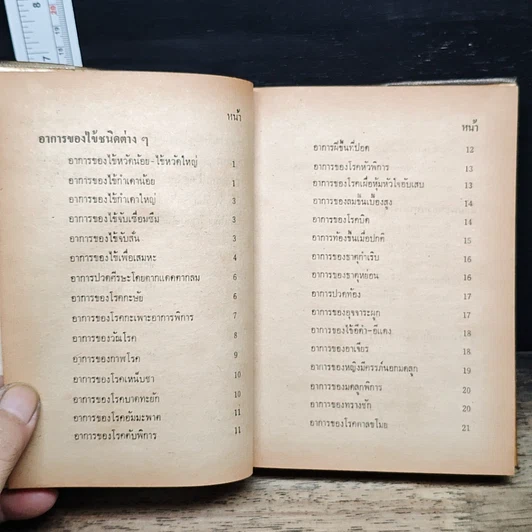 หน้า
อาการของไข้ชนิดต่าง ๆ
อาการของไข้หวัดน้อย-ไข้หวัดใหญ่ 1
อาการของไข้กำเดาน้อย 1
อาการของไข้กำเดาใหญ่ 3
อาการของไข้จับเชื่อมซึม 3
อาการของไข้จับสั่น 3
อาการของไข้เพื่อเสมหะ 4
อาการปวดศีรษะโดยตากแดดตากลม 6
อาการของโรคกะษัย 6
อาการของโรคกะเพาะอาการพิการ 7
อาการของวัณโรค 8
อาการของกาฬโรค 9
อาการของโรคเหน็บชา 10
อาการของโรคบาดทะยัก 10
อาการของโรคอัมมะพาต 11
อาการของโรคตับพิการ 11
หน้า
อาการฝีขึ้นที่ปอด 12
อาการของโรคหัวพิการ 13
อาการของโรคเยื่อหุ้มหัวใจอับเสบ 13
อาการของลมขึ้นเบื้องสูง 14
อาการของโรคบิด 14
อาการท้องขึ้นเมื่อปกติ 15
อาการของธาตุกำเริบ 16
อาการของธาตุหย่อน 16
อาการปวดท้อง 17
อาการของอุจจาระผูก 17
อาการของไข้อีดำ-อีแดง 17
อาการของอาเจียร 18
อาการของหญิงมีครรภ์นอกมดลูก 19
อาการของมดลูกพิการ 20
อาการของทรางชัก 20
อาการของโรคตาลขโมย 21